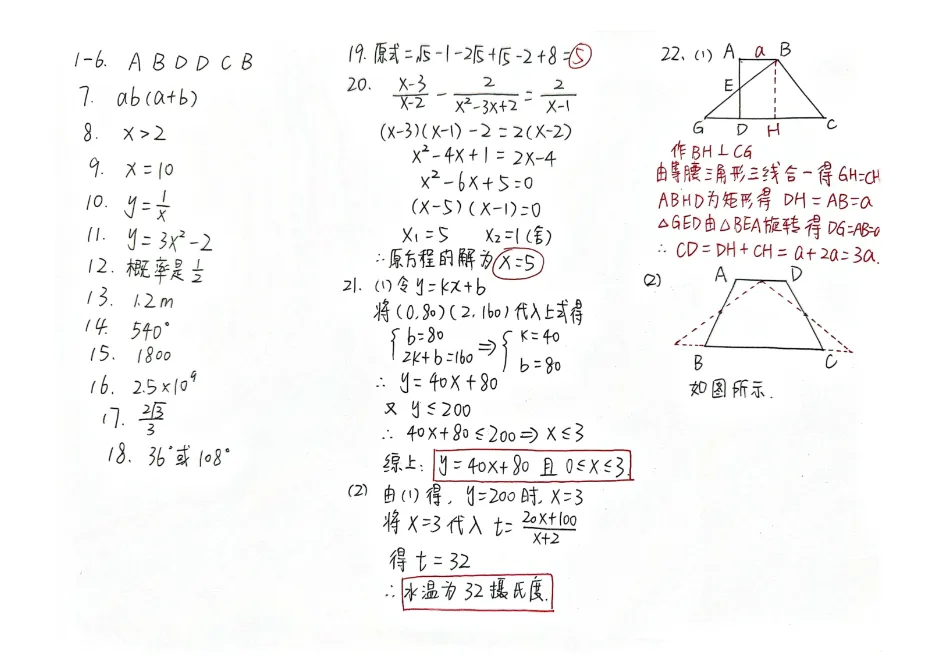 1-6. A B D D C B
7. ab(a+b)
8. x>2
9. x=10
10. y=1/x
11. y=3x²-2
12. 概率是1/2
13. 1.2m
14. 540°
15. 1800
16. 2.5×10⁹
17. 2√3/3
18. 36°或108°
19. 原式=√5-1-2√5+√5-2+8=5
20. (x-3)/(x-2) - 2/(x²-3x+2) = 2/(x-1)
(x-3)(x-1)-2=2(x-2)
x²-4x+1=2x-4
x²-6x+5=0
(x-5)(x-1)=0
x₁=5 x₂=1(舍)
∴原方程的解为x=5
21. (1)令y=kx+b
将(0,80)(2,160)代入上式得
{b=80 2k+b=160 ⇒ {k=40 b=80
∴ y=40x+80
又 y≤200
∴ 40x+80≤200⇒x≤3
综上: y=40x+80 且 0≤x≤3.
(2) 由(1)得, y=200时, x=3
将x=3代入 t=(20x+100)/(x+2)
得 t=32
∴ 水温为32摄氏度.
22. (1)
A a B
E
G D H C
作BH⊥CG
由等腰三角形三线合一得GH=CH
ABHD为矩形得 DH=AB=a
△GED由△BEA旋转得DG=AB=a
∴ CD=DH+CH=a+2a=3a.
(2)
A D
B C
如图所示.